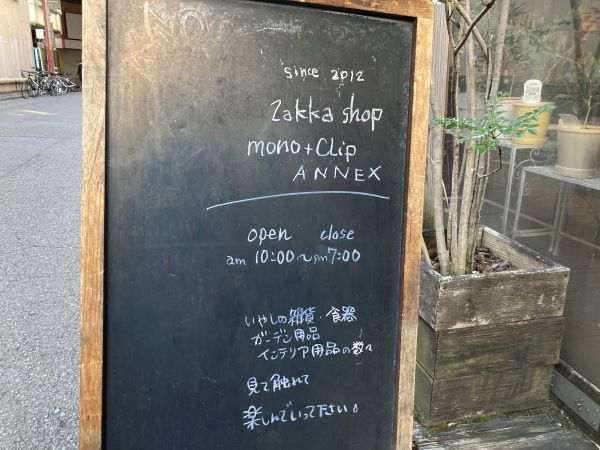 since 2012
Zakka shop
mono+Clip
ANNEX
open close
am 10:00～pm 7:00
いやしの雑貨・食器
ガーデン用品
インテリア用品の数々
見て触れて
楽しんでいって下さい。